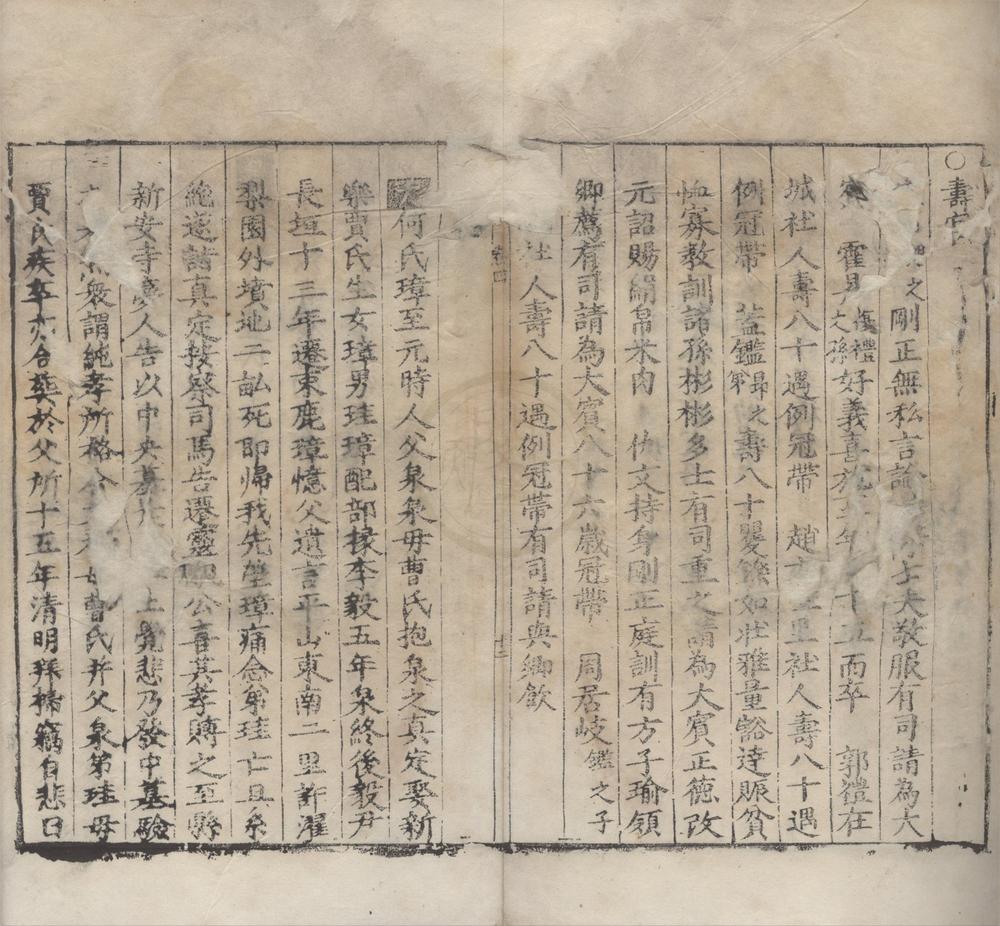 ○壽官
剛正無私言論 士夫敬服有司請為大
霍 好義喜施 年 十五而卒 郭禮在
城社人壽八十遇例冠帶 趙 里社人壽八十遇
例冠帶 藍鑑 弟 之壽八十矍鑠如壯雅量豁達賑貧
恤寡教訓諸孫彬彬多士有司重之請為大賓正德改
元詔賜絹帛米肉 仇文持身剛正庭訓有方子瑜領
鄉薦有司請為大賓八十六歲冠帶 周居岐鑑之子
社人壽八十遇例冠帶有司請與鄉飲
十二
何氏璋至元時人父泉泉母曹氏抱泉之真定娶新
樂賈氏生女璋男珪璋配部掾李毅五年泉終後毅尹
長垣十三年遷束鹿璋憶父遺言平山東南二里許濯
梨園外墳地二畝死即歸我先塋璋痛念弟珪亡且系
絶遂詣真定按察司馬告遷靈 公喜其孝賻之至縣
新安寺夢人告以中央墓 上覺悲乃發中墓驗
衆謂純孝所格 曹氏并父泉弟珪母
賈氏疾卒亦合葬於父所十五年清明拜掃 自悲曰